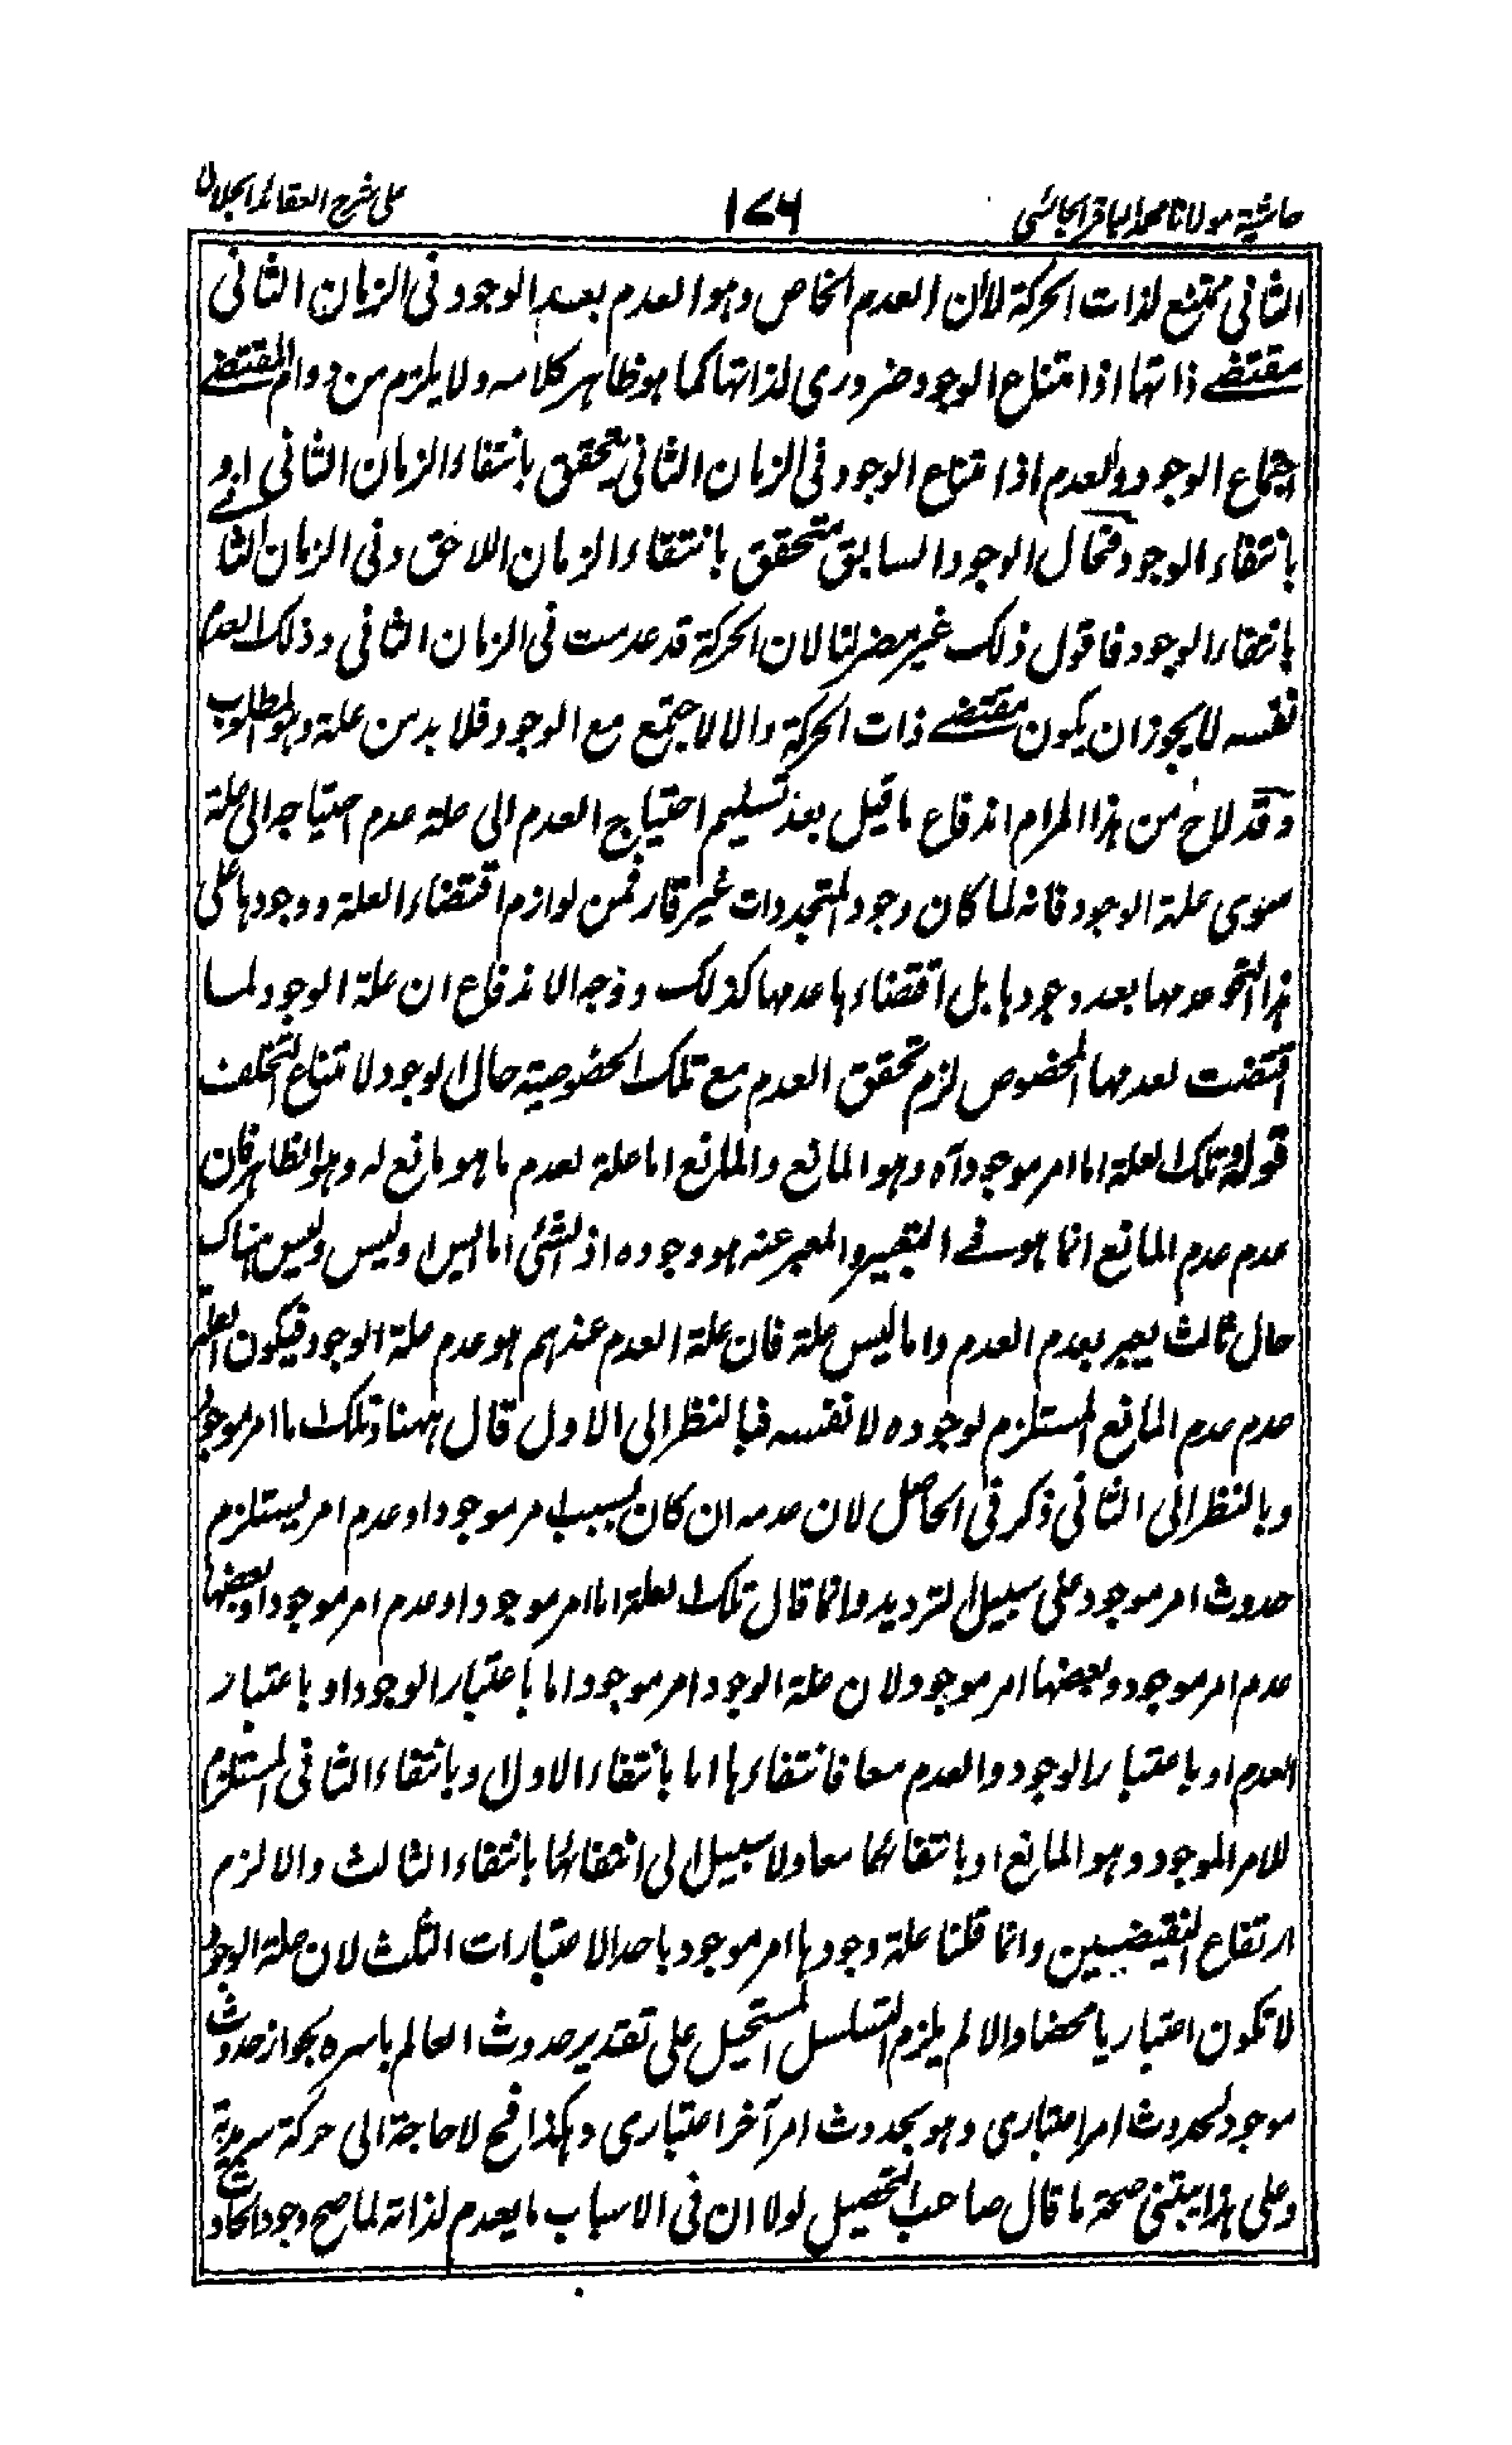 حاشية مولانا محمد الباقر الجائسى ١٧٦ على شرح العقائد الجلالى
الثانى ممتنع لذات الحركة لان العدم الخاص وهو العدم بعد الوجود فى الزمان الثانى
مقتضى ذاتها اذ امتناع الوجود ضرورى لذاتها كما هو ظاهر كلامه ولا يلزم من دوام المقتضى
اجتماع الوجود والعدم اذ امتناع الوجود فى الزمان الثانى يتحقق بانتفاء الزمان الثانى او
بانتفاء الوجود فحال الوجود السابق متحقق بانتفاء الزمان اللاحق وفى الزمان الثانى
بانتفاء الوجود فاقول ذلك غير مضر لنا لان الحركة قد عدمت فى الزمان الثانى وذلك العدم
نفسه لا يجوز ان يكون مقتضى ذات الحركة والا لاجتمع مع الوجود فلا بد من علة وهو المطلوب
وقد لاح من هذا المرام اندفاع ما قيل بعد تسليم احتياج العدم الى علة عدم احتياجه الى علة
سوى علة الوجود فانه لما كان وجود المتجددات غير قار فمن لوازم اقتضاء العلة ووجودها على
هذا النحو عدمها بعد وجودها بل اقتضاءها عدمها كذلك ووجه الاندفاع ان علة الوجود لما
اقتضت لعدمها المخصوص لزم تحقق العدم مع تلك الخصوصية حال الوجود لامتناع التخلف
قوله وتلك العلة اما امر موجود آه وهو المانع والمانع اما علة لعدم ما هو مانع له وهو الظاهر فان
عدم عدم المانع انما هو فى التعبير والمعبر عنه هو وجوده اذ الشئ اما ايس او ليس وليس هناك
حال ثالث يعبر بعدم العدم واما ليس علة فان علة العدم عندهم هو عدم علة الوجود فيكون العلة
عدم عدم المانع المستلزم لوجوده لا نفسه فبالنظر الى الاول قال ههنا وتلك اما امر موجود
وبالنظر الى الثانى ذكر فى الحاصل لان عدمه ان كان بسبب امر موجود او عدم امر يستلزم
حدوث امر موجود على سبيل الترديد وانما قال تلك العلة اما امر موجود او عدم امر موجود او بعضها
عدم امر موجود وبعضها امر موجود لان علة الوجود امر موجود اما باعتبار الوجود او باعتبار
العدم او باعتبار الوجود والعدم معا فانتفاءها اما بانتفاء الاول او بانتفاء الثانى المستلزم
للامر الموجود وهو المانع او بانتفائهما معا ولا سبيل الى انتفائهما بانتفاء الثالث والا لزم
ارتفاع النقيضين وانما قلنا علة وجودها امر موجود باحد الاعتبارات الثلث لان علة الوجود
لا تكون اعتباريا محضا والا لم يلزم التسلسل المستحيل على تقدير حدوث العالم باسره بجواز حدوث
موجود لحدوث امر اعتبارى وهو بحدوث امر آخر اعتبارى وهكذا فح لا حاجة الى حركة سرمدية
وعلى هذا يبتنى صحة ما قال صاحب التحصيل لولا ان فى الاسباب ما يعدم لذاته لما صح وجود الحادث